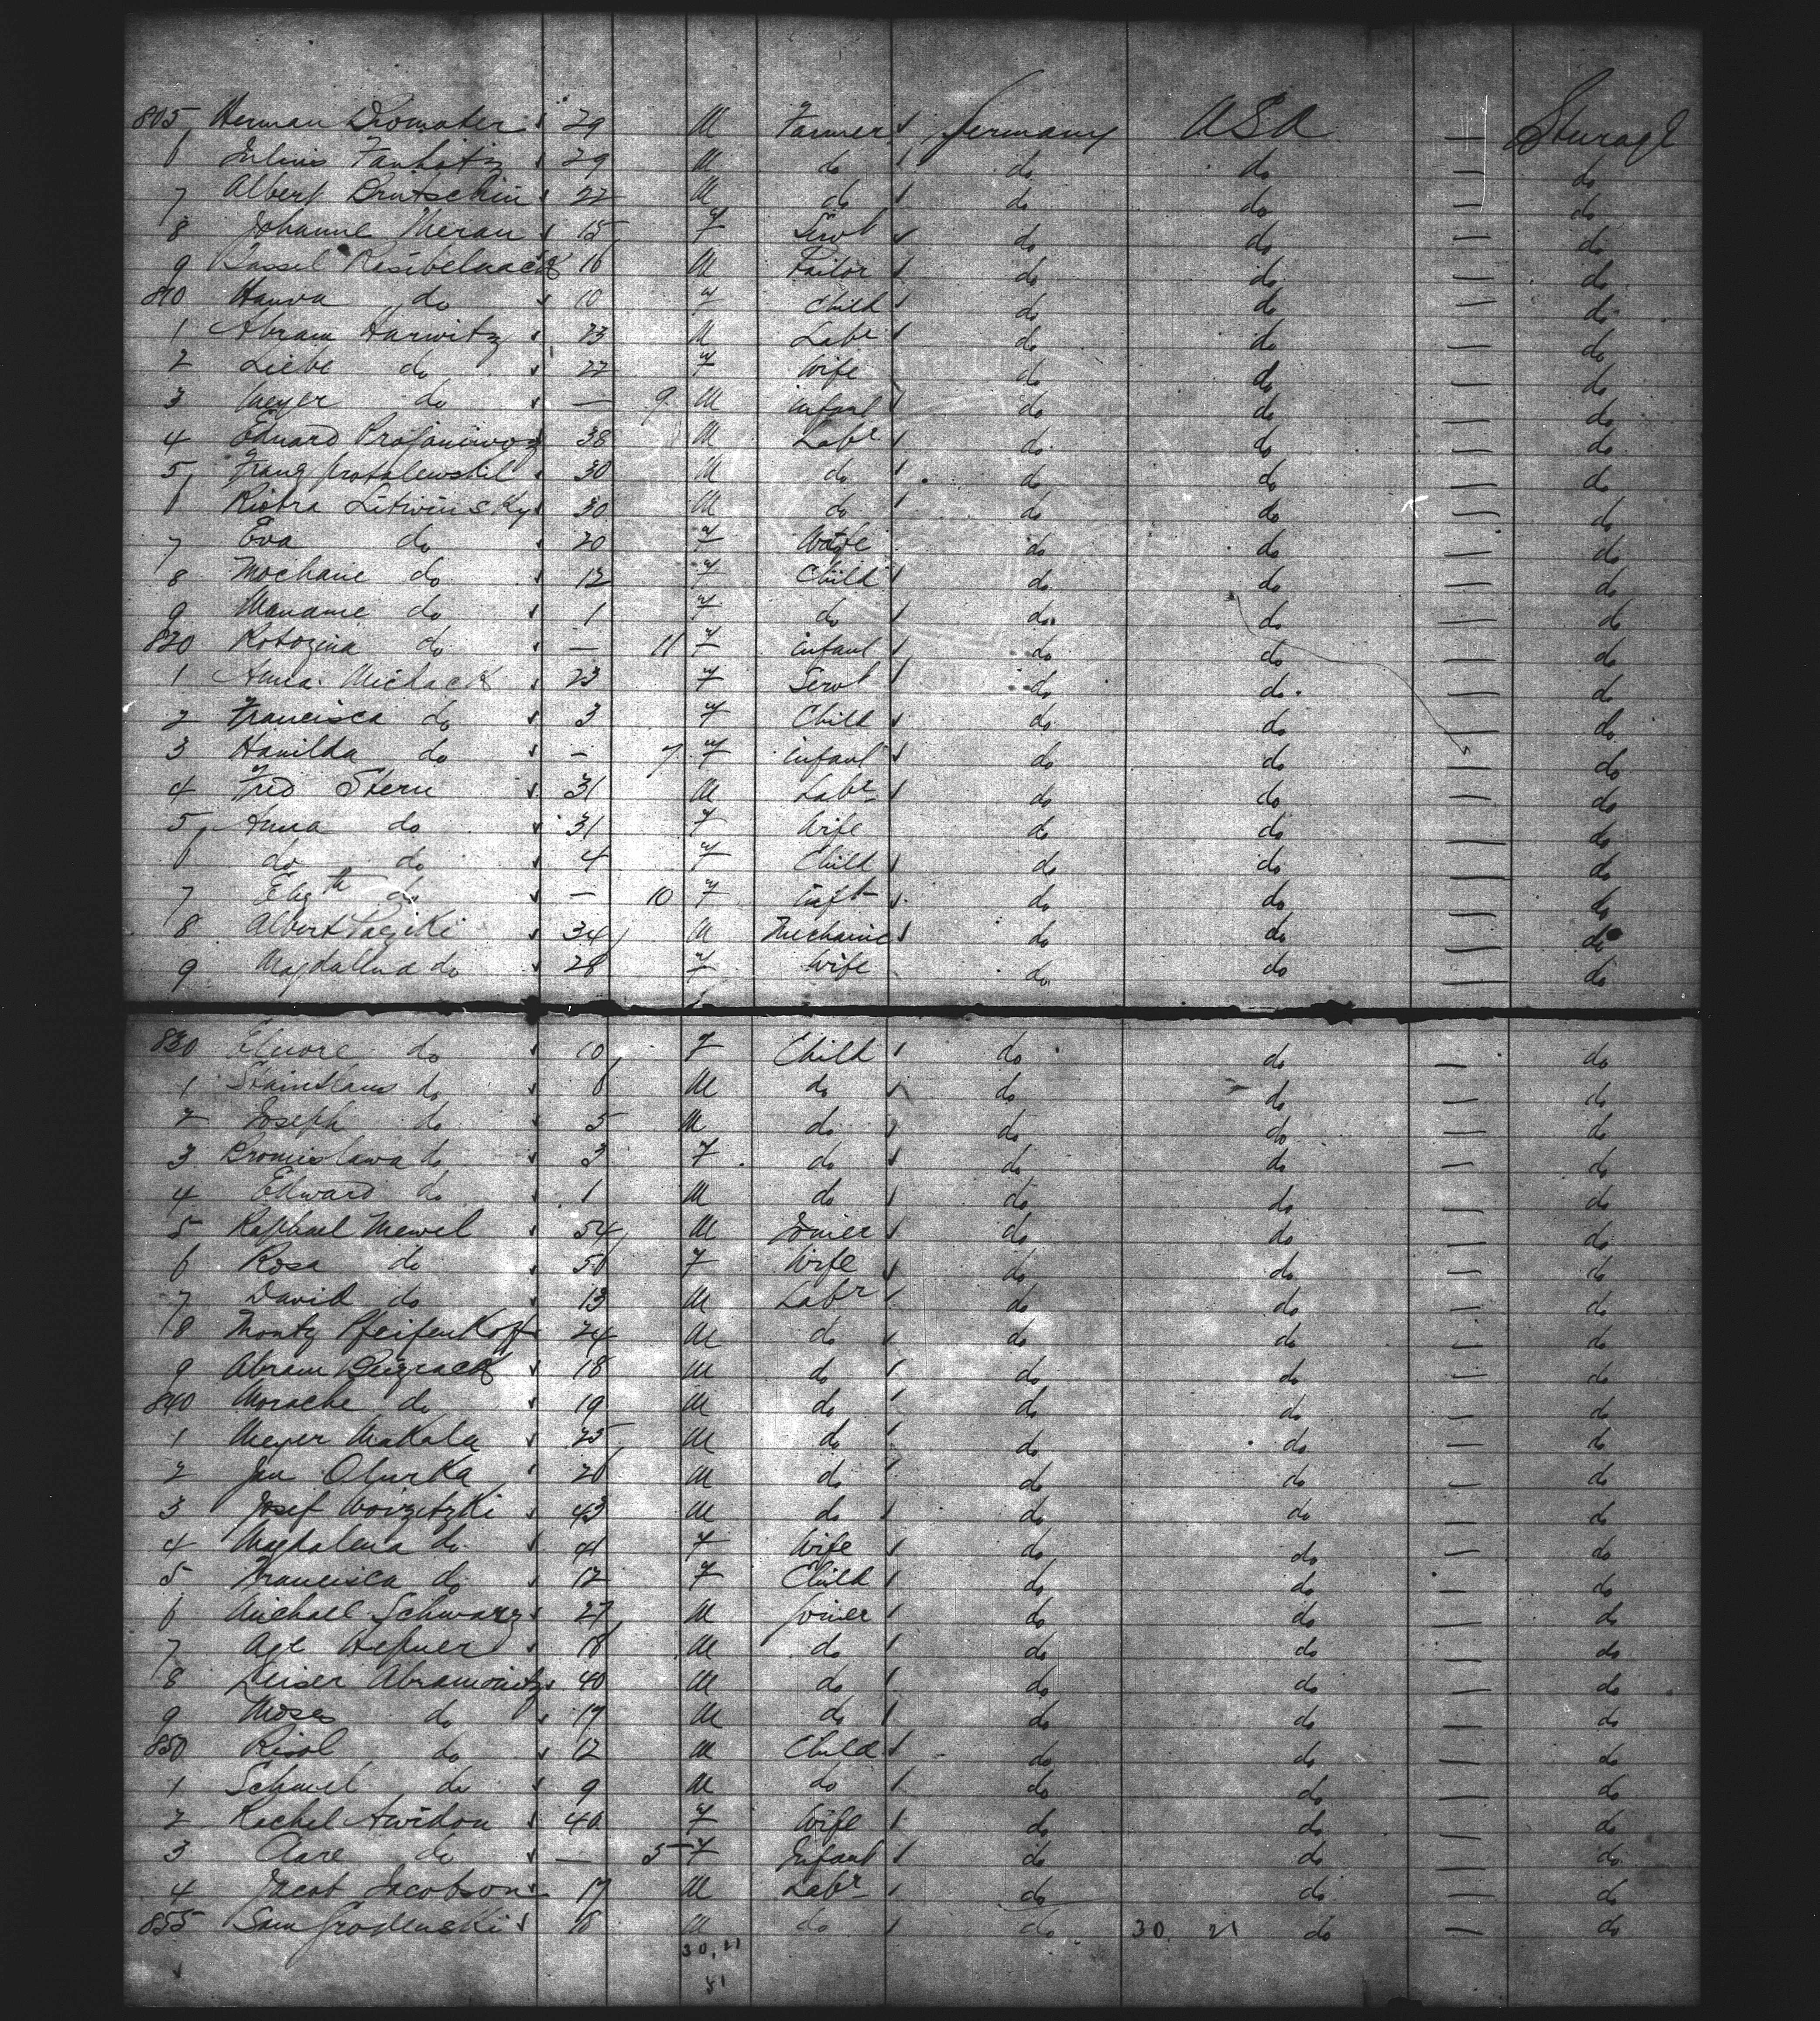 805 Herman Dromater 29 M Farmer Germany USA — Sturage
6 Julius 29 M do do do — do
7 Albert 22 M do do do — do
8 Johanne Meran 15 F Servt do do — do
9 16 M Tailor do do — do
810 Hanna do 10 F Child do do — do
1 Abram Harwitz 23 M Labr do do — do
2 Liebe do 22 F Wife do do — do
3 Meyer do — 9 M infant do do — do
4 Eduard 38 M Labr do do — do
5 Franz 30 M do do do — do
6 Litwinsky 30 M do do do — do
7 Eva do 20 F Wife do do — do
8 Mochane do 12 F Child do do — do
9 Maname do 1 F do do do — do
820 Rotozina do — 11 F infant do do — do
1 Anna Michack 23 F Servt do do — do
2 Francisca do 3 F Child do do — do
3 Hanilda do — 7 F infant do do — do
4 Fred Stern 31 M Labr do do — do
5 Anna do 31 F Wife do do — do
6 do do 4 F Child do do — do
7 Elizth do — 10 F Inft do do — do
8 Albert 34 M Mechanic do do — do
9 Magdallena do 28 F Wife do do — do
830 Elnore do 10 F Child do do — do
1 Stainslaus do 8 M do do do — do
2 Joseph do 5 M do do do — do
3 Bromislawa do 3 F do do do — do
4 Edward do 1 M do do do — do
5 Raphael Mewel 54 M Joiner do do — do
6 Rosa do 50 F Wife do do — do
7 David do 13 M Labr do do — do
8 Montz Pfeifenkopf 24 M do do do — do
9 Abram 18 M do do do — do
840 Morache do 19 M do do do — do
1 Meyer Makala 25 M do do do — do
2 Jan Olurka 20 M do do do — do
3 Josef Woizetzki 43 M do do do — do
4 Magdalena do 41 F Wife do do — do
5 Francisca do 12 F Child do do — do
6 Michael Schwarz 27 M Joiner do do — do
7 Age Hefner 18 M do do do — do
8 Leiser Abramowitz 40 M do do do — do
9 Moses do 17 M do do do — do
850 Risol do 12 M Child do do — do
1 Schmel do 9 M do do do — do
2 Rachel Awidon 40 F Wife do do — do
3 Aare do — 5 F Infant do do — do
4 Jacob Jacobson 17 M Labr do do — do
855 Sam Grodenski 18 M do do 30. 21 do — do
30. 21
51